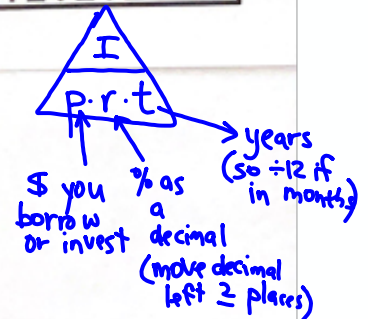 I
p.r.t
years
(so ÷12 if
in months)
$ you
borrow
or invest
% as
a
decimal
(move decimal
left 2 places)